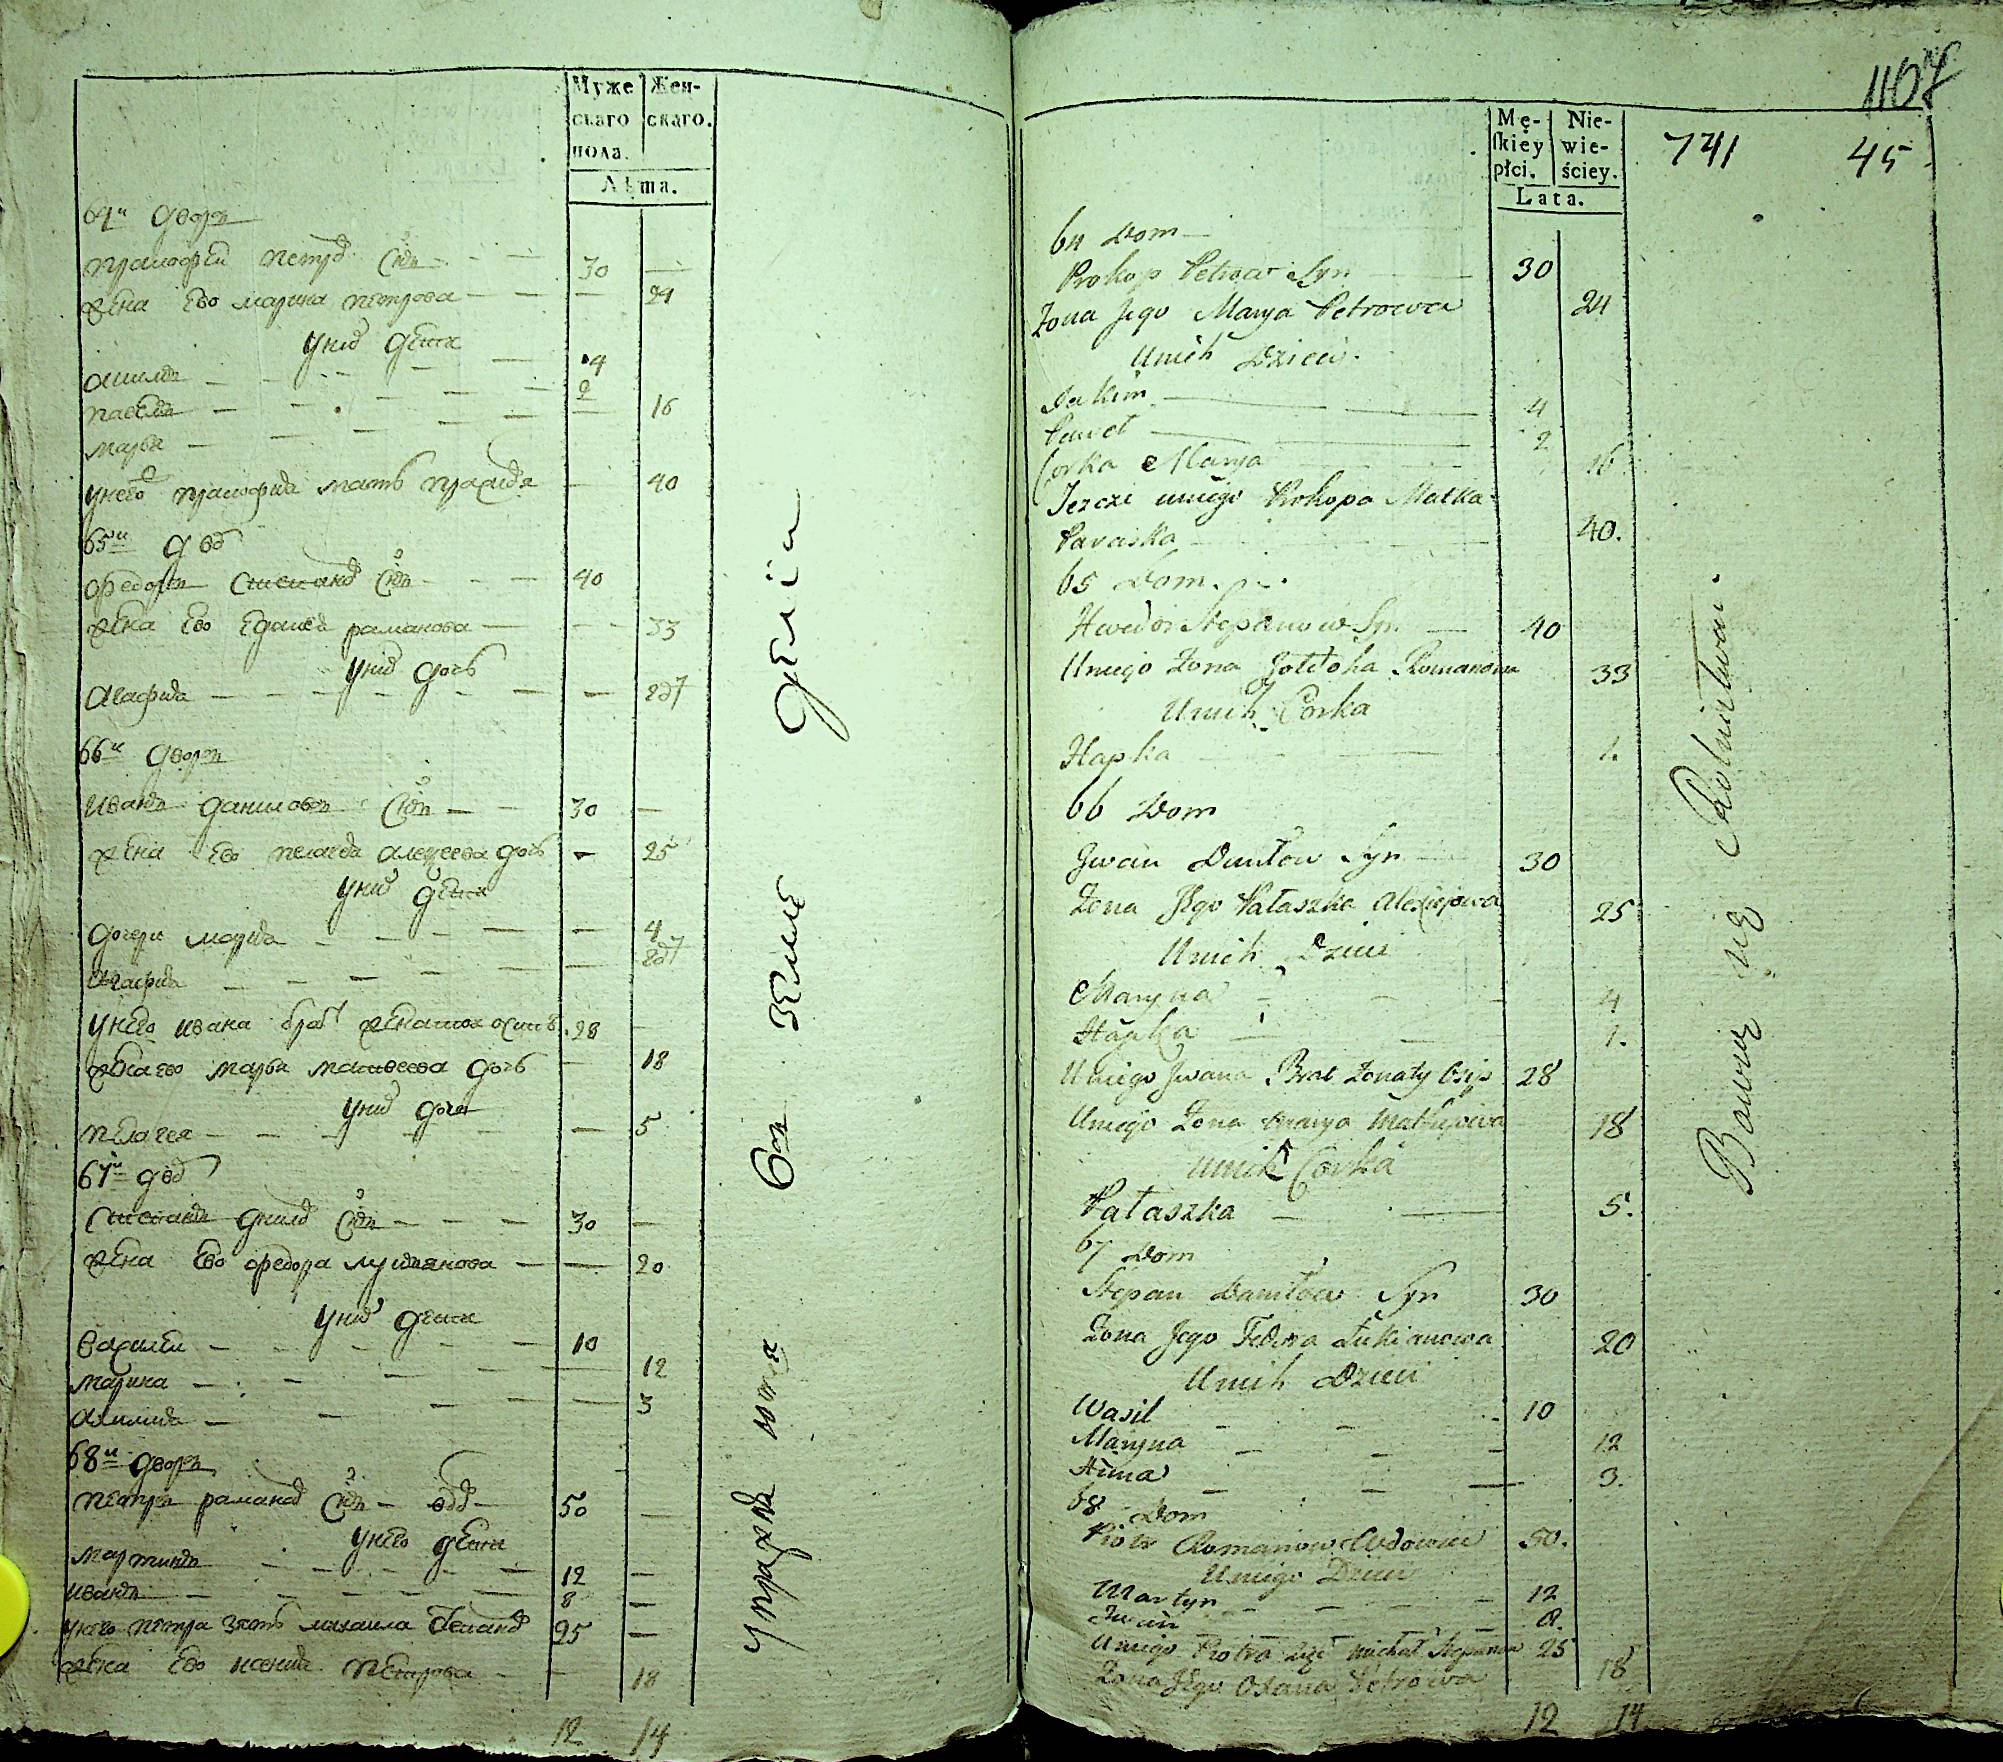 Муже
скаго
пола.
Жен-
скаго.
Лѣта.
64й дворъ
жена Ево марина петрова — — 24
у них дѣти
4
павелъ — — 2
марья — — 16
у нево матъ — 40
65й дво
федоръ степано снъ — — 40
жена Ево романова — — 33
у них дочь
агафия — — 2д7
66й дворъ
иванъ даниловъ снъ — 30 —
жена Ево пелагея алексеева дочь — 25
у них дѣти
дочери марина — — 4
агафия — — 2д7
у нево ивана брат женатои осипъ 28
жена ево марья матвеева дочь — 18
у них дочь
пелагея — — 5
67й дво
степанъ данило снъ — — 30 —
жена Ево федора лукьянова — — 20
у них дѣти
василеи — — 10
марина — — 12
— 3
68й дворъ
петръ романо снъ — вдо — 50 —
у нево дѣти
мартинъ — 12 —
иванъ — 8 —
у нево петра зять михаила степано 25 —
жена Ево ксения петрова — — 18
12 14
упражня ютца въ земле дѣліи
1167
Mę-
skiey
płci.
Nie-
wie-
ściey.
Lata.
741 45
64 Dom —
Prokop Petrow Syn — 30
Zona Jego Marya Petrowa 24
Unich Dzieci.
Jakim — 4
Paweł — 2
Corka Marya 16
Jezcze uniego Prokopa Matka
Paraska — 40.
65 Dom.
Hwedor Stepanow Syn — 40
Uniego Zona Romanowa 33
Unich Corka
Hapka — 1.
66 Dom
Jwan Daniłow Syn — 30
Zona Jego Pałaszka Alexiejowa 25
Unich Dzieci
Maryna — 4
Hapka — 1.
Uniego Jwana Brat Zonaty Osip 28
Uniego Zona Marya Matfiejowa 18
Unich Corka
Pałaszka — 5.
67 Dom
Stepan Daniłow Syn 30
Zona Jego Fedora Łukianowa 20
Unich Dzieci
Wasil — 10
Maryna — 12
— 3.
68 Dom
Piotr Romanow Wdowiec 50.
Uniego Dzieci
Martyn — 12
Jwan — 8.
Uniego Piotra Zięć Michał Stepanow 25
Zona Jego Oxana Petrowa 18
12 14
Bawią się Rolnictwem.